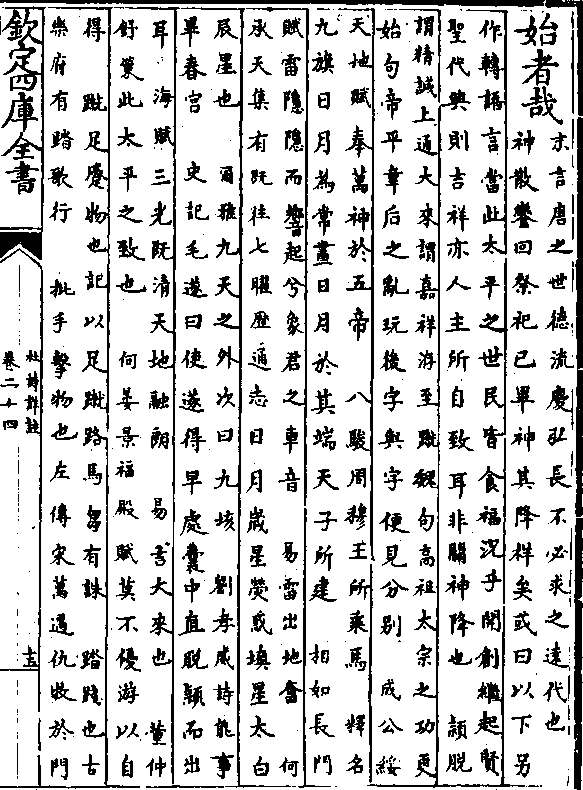 始者哉
亦言唐之世德流慶弘長不必求之遠代也
神散響回祭祀已畢神其降祥矣或曰以下另
作轉語言當此太平之世民皆食福況乎開創繼起賢
聖代興則吉祥亦人主所自致耳非關神降也 穎脫
謂精誠上通大來謂嘉祥游至蹴魏句高祖太宗之功更
始句帝平韋后之亂玩後字與字便見分別 成公綏
天地賦奉萬神於五帝 八駿周穆王所乘馬 釋名
九旗日月為常畫日月於其端天子所建 相如長門
賦雷隱隱而響起兮象君之車音 易雷出地奮 何
承天集有既往七曜歷通志日月歲星熒惑填星太白
辰星也 爾雅九天之外次曰九垓 劉孝威詩能事
畢春宮 史記毛遂曰使遂得早處囊中直脫穎而出
耳 海賦三光既清天地融朗 易言大來也 董仲
舒策此太平之致也 何晏景福殿賦莫不優游以自
得 蹴足蹙物也記以足蹴路馬芻有誅 踏踐也古
樂府有踏歌行 批手擊物也左傳宋萬遇仇牧於門
欽定四庫全書
杜詩詳註
卷二十四
十三